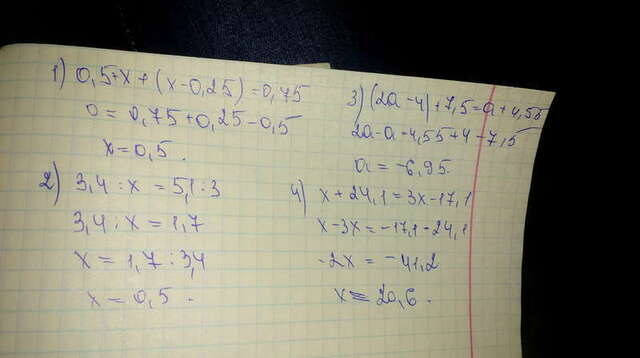 1) 0,5+x+(x-0,25)=0,75
0=0,75+0,25-0,5
x=0,5.
2) 3,4:x=5,1:3
3,4:x=1,7
x=1,7:3,4
x=0,5.
3) (2a-4)+7,5=a+4,55
2a-a=4,55+4-7,5
a=-6,95.
4) x+24,1=3x-17,1
x-3x=-17,1-24,1
-2x=-41,2
x=20,6.